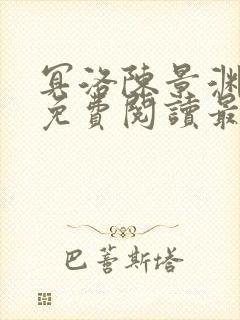 冥洛陳景渊
免費閱讀最
巴菩斯塔